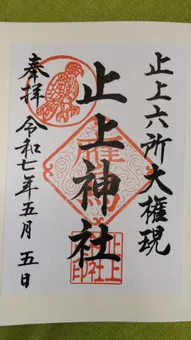 止上六所大権現
止上神社
奉拝
令和七年五月五日